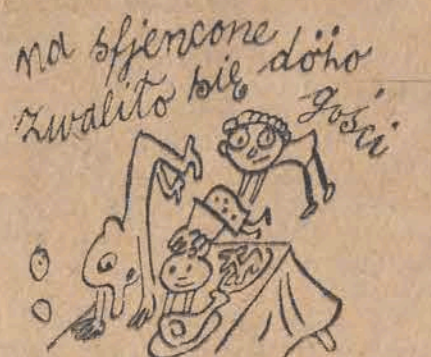 na sfjencone
zwaliło się dóżo
gości